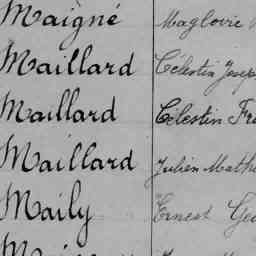 Maigné Magloire
Maillard Célestin Josep
Maillard Célestin Fra
Maillard Julien Math
Maily Ernest Geo